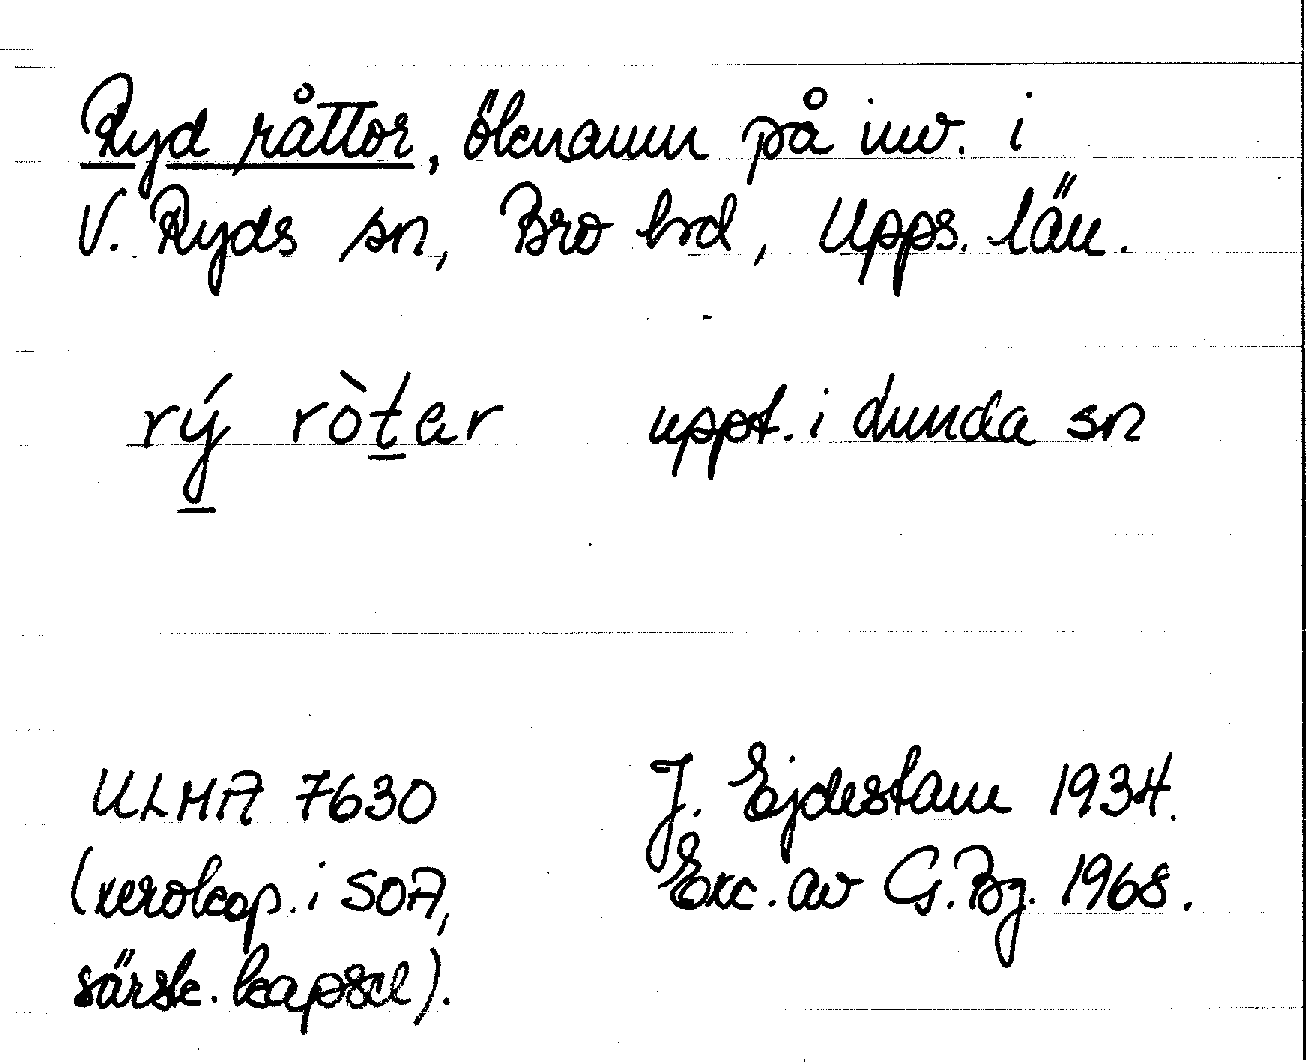 Ryd råttor, öknamn på inv. i
V. Ryds sn, Bro hd, Upps. län.
rý ròtar uppt. i Lunda sn
ULMA 7630 J. Ejdestam 1934.
(xerokop. i SOA, Exc. av G. Bg. 1968.
särsk. kapsel).